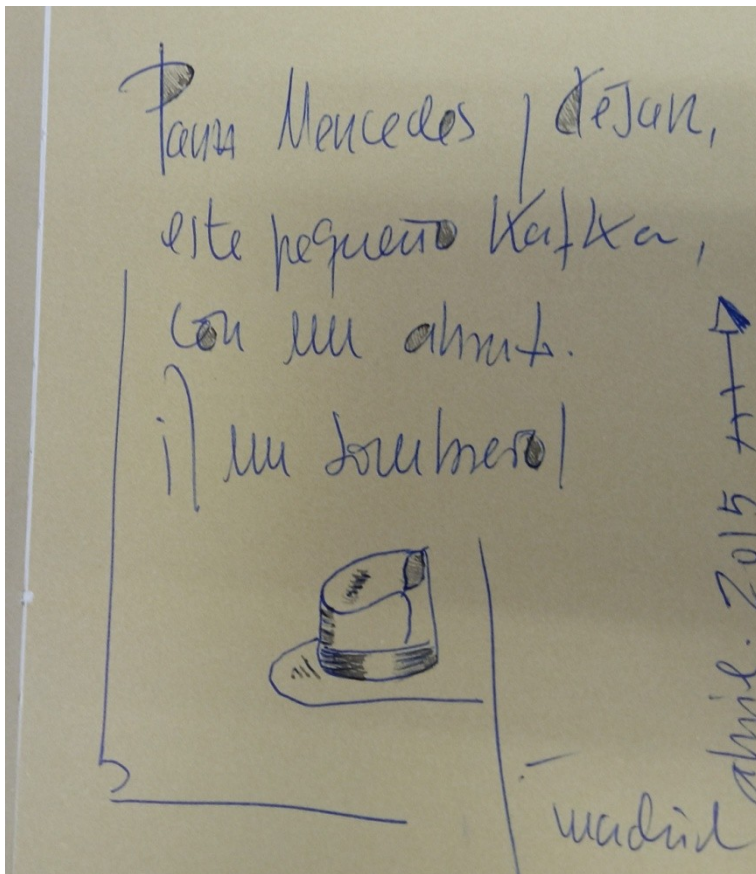 Para Mercedes y Dejan,
este pequeño Kafka,
con un abrazo.
¡y un sombrero!
madrid
abril. 2015